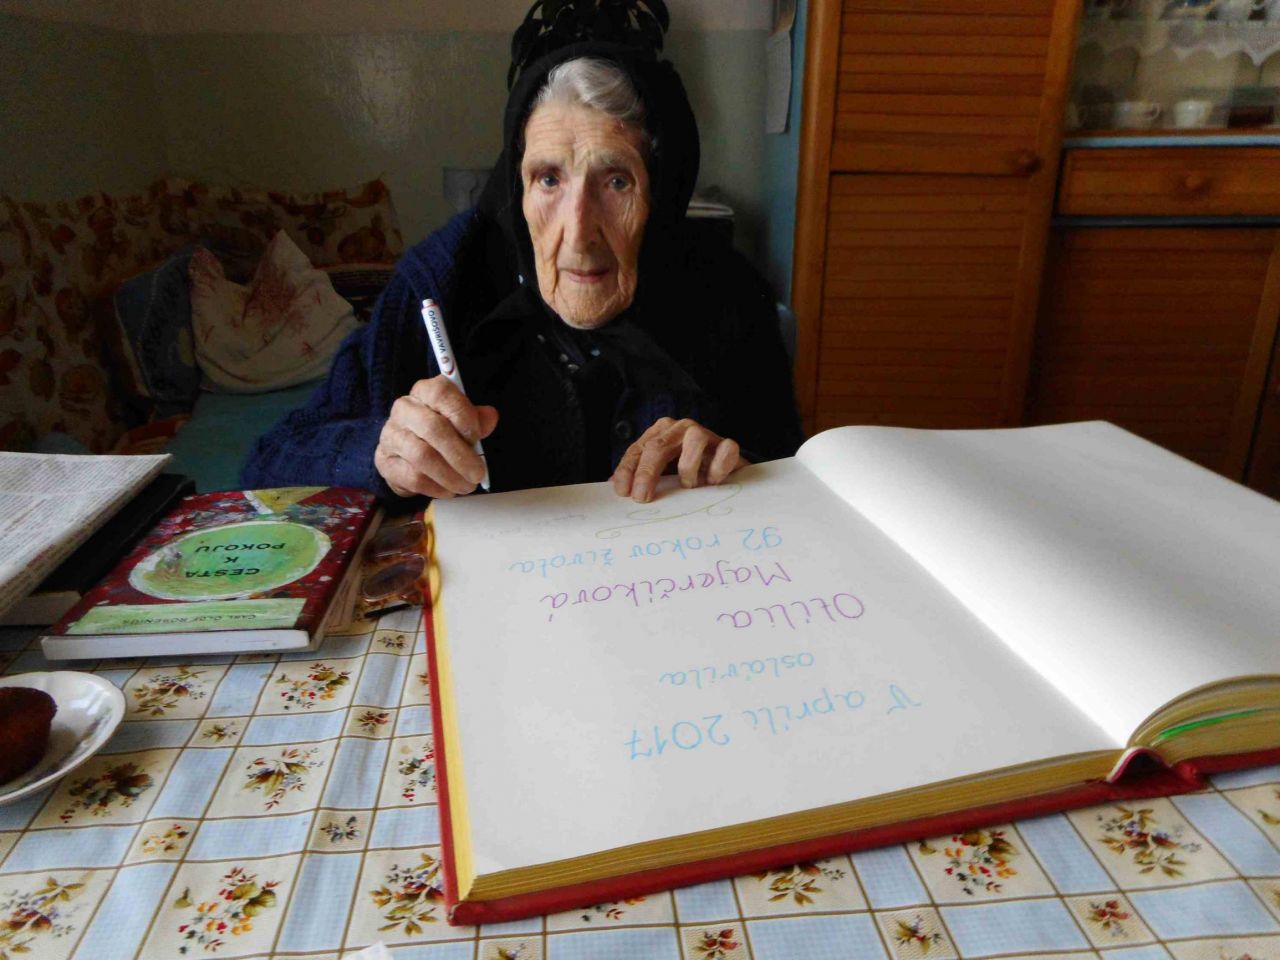 V apríli 2017
oslávila
Otília
Majerčíková
92 rokov života
CESTA
K
POKOJU
CARL OLOF ROSENIUS
VAVRIŠOVO